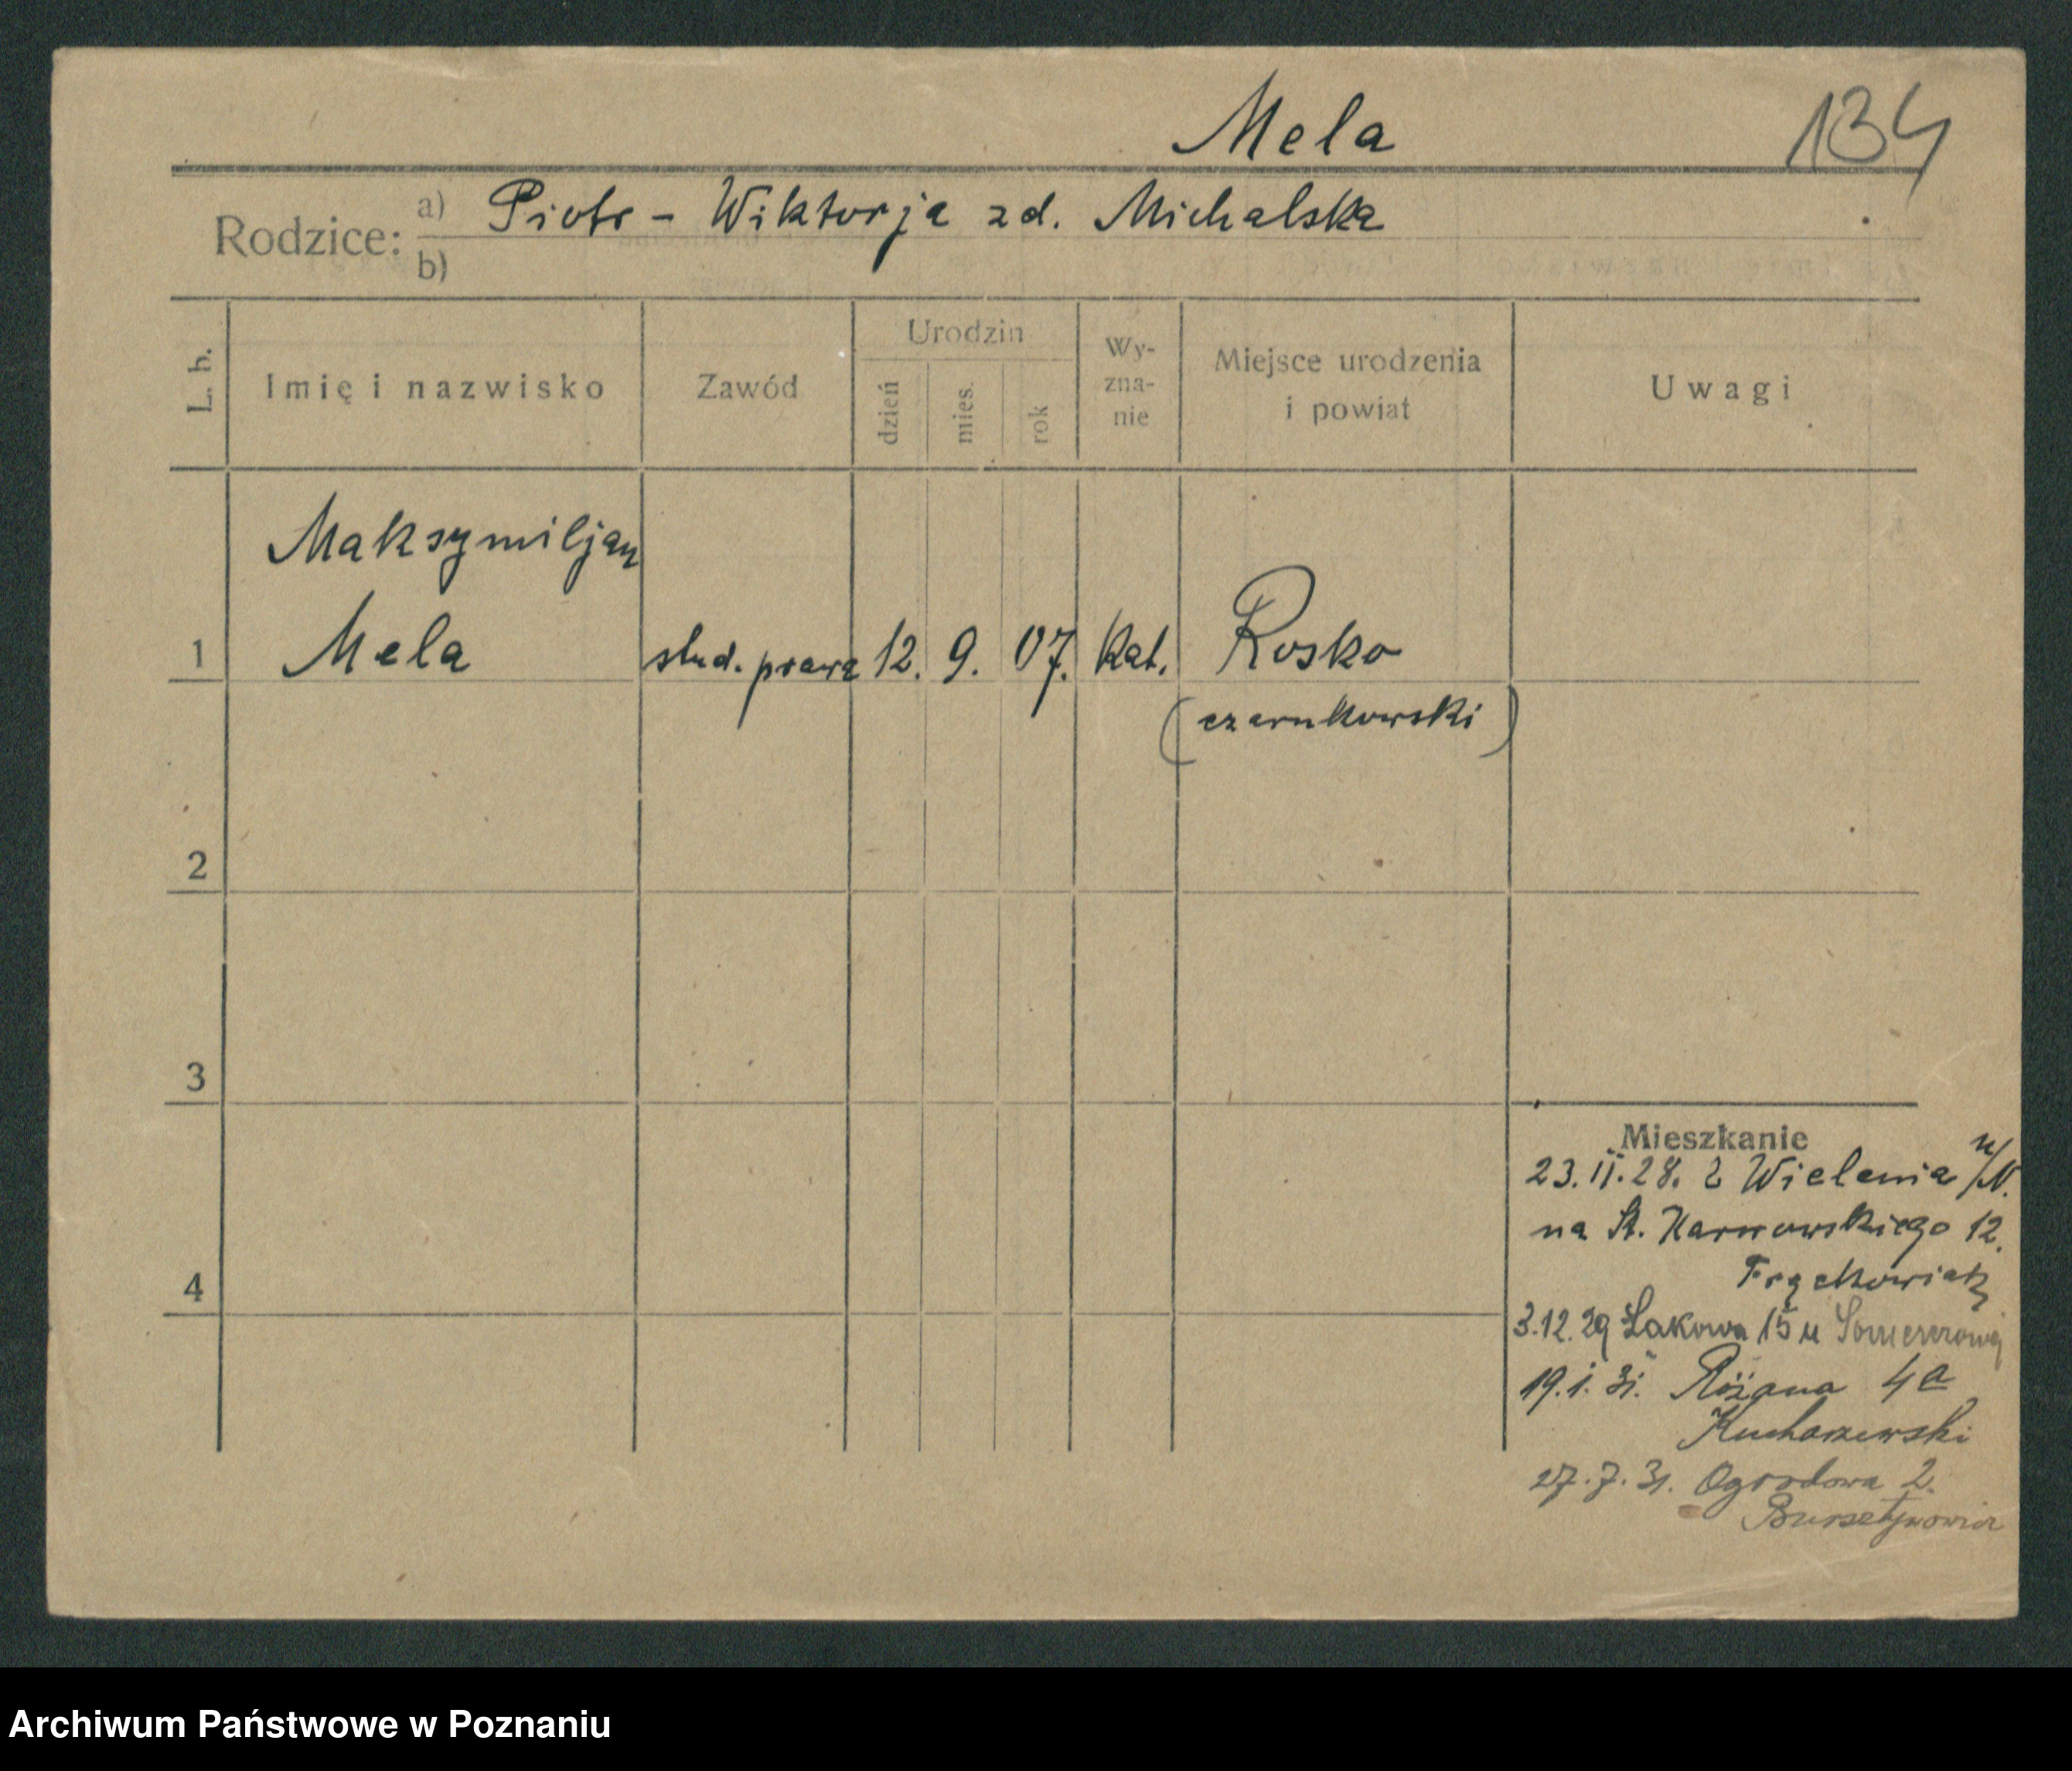 Mela
134
Rodzice:
a) Piotr - Wiktorja zd. Michalska
b)
L. b.
Imię i nazwisko
Zawód
Urodzin
dzień
mies.
rok
Wy-
zna-
nie
Miejsce urodzenia
i powiat
Uwagi
Maksymiljan
1 Mela stud. prawa 12. 9. 07. Kat. Rosko
(czarnkowski)
2
3
4
Mieszkanie
23.II.28. z Wielenia n/N.
na St. Karwowskiego 12.
Frąckowiak
3.12.29 Łąkowa 15 u
19.1.31. Różana 4a
Kucharzewski
27.7.31. Ogrodowa 2.
Archiwum Państwowe w Poznaniu